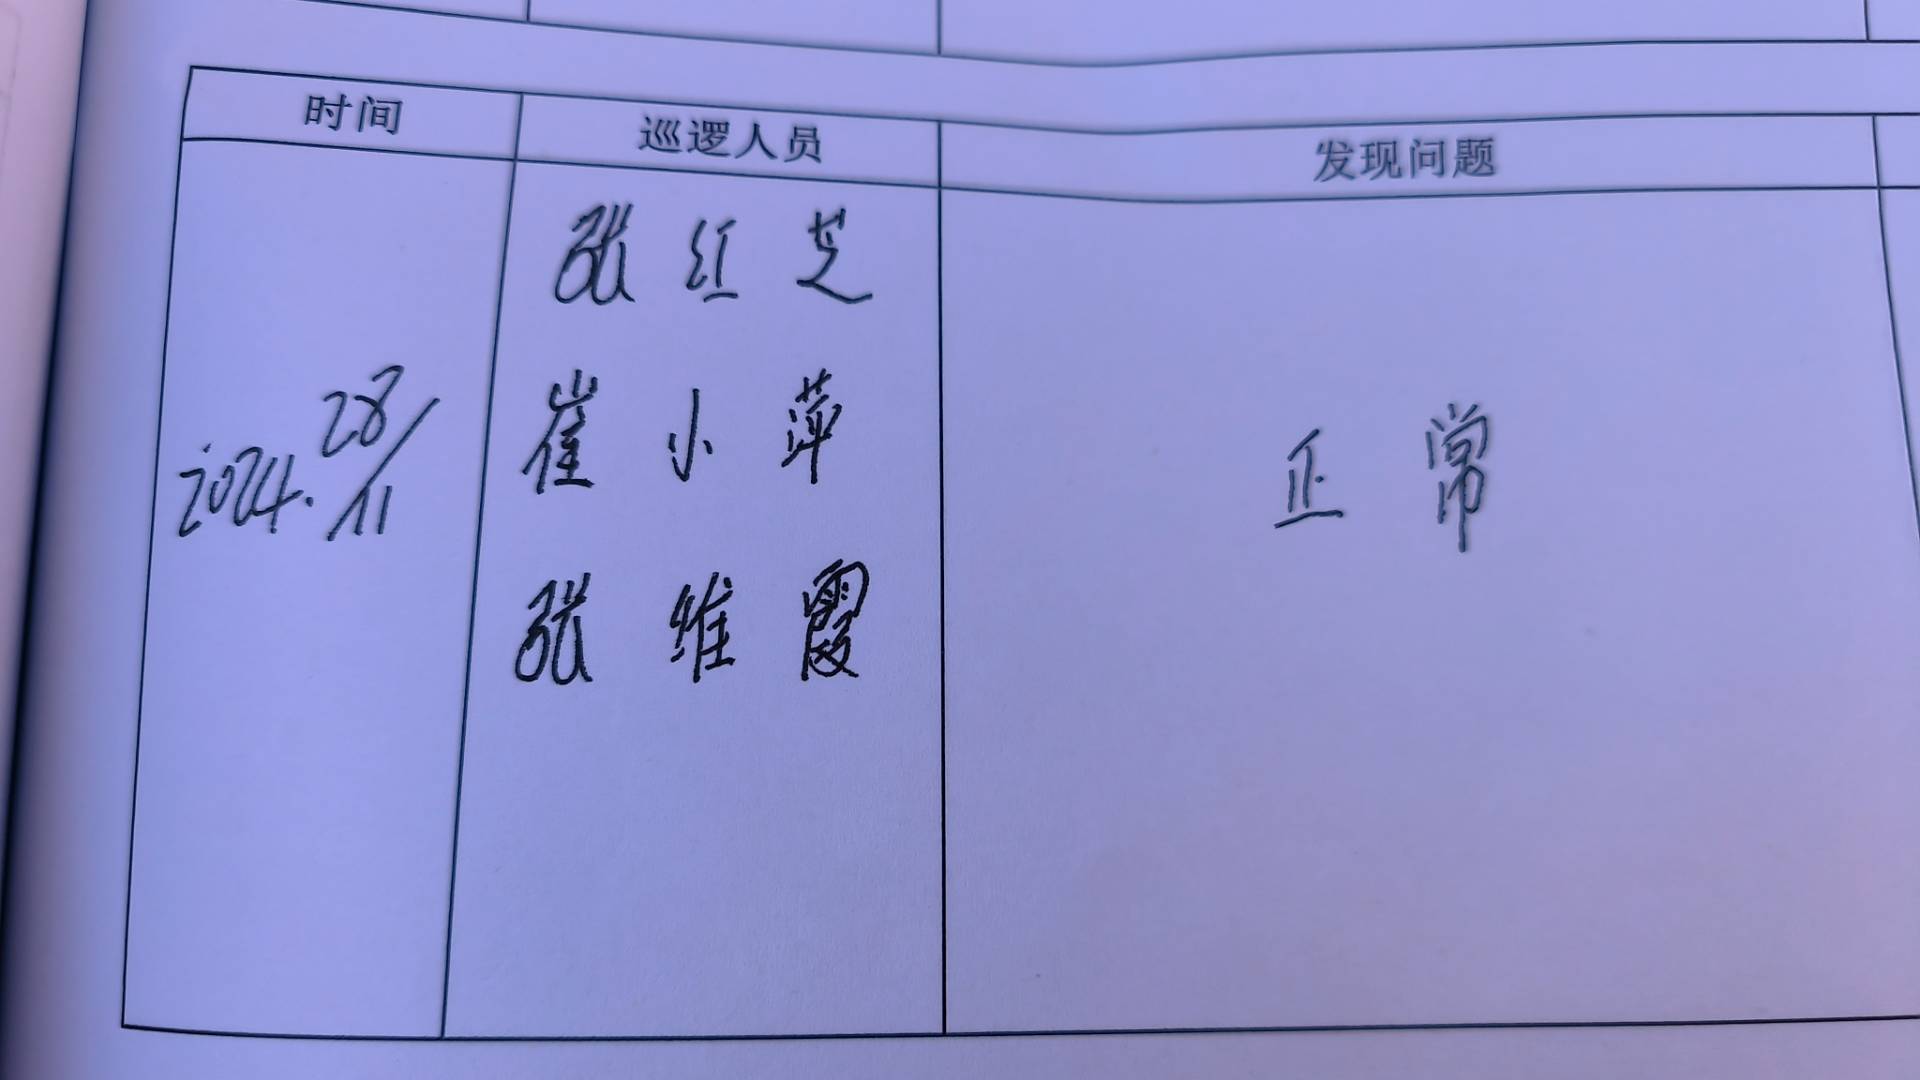 时间 巡逻人员 发现问题
张红芝
崔小萍
2024. 28/11
正常
张维霞